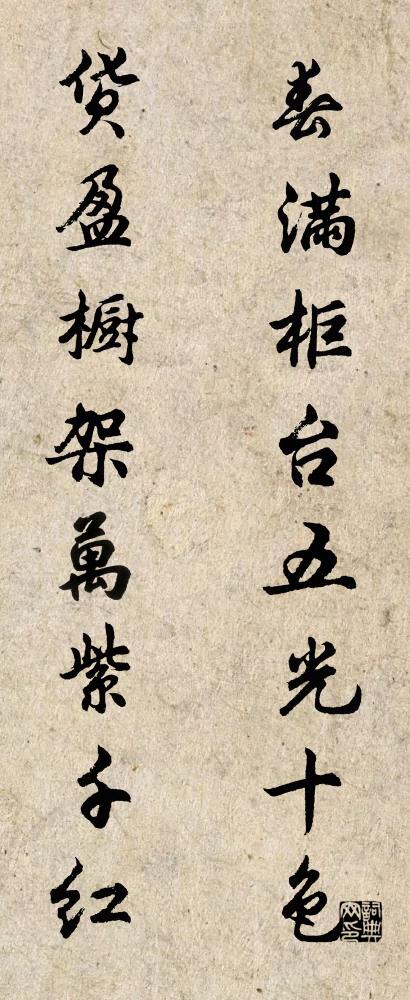 春满柜台五光十色
货盈橱架萬紫千红
詞典网印